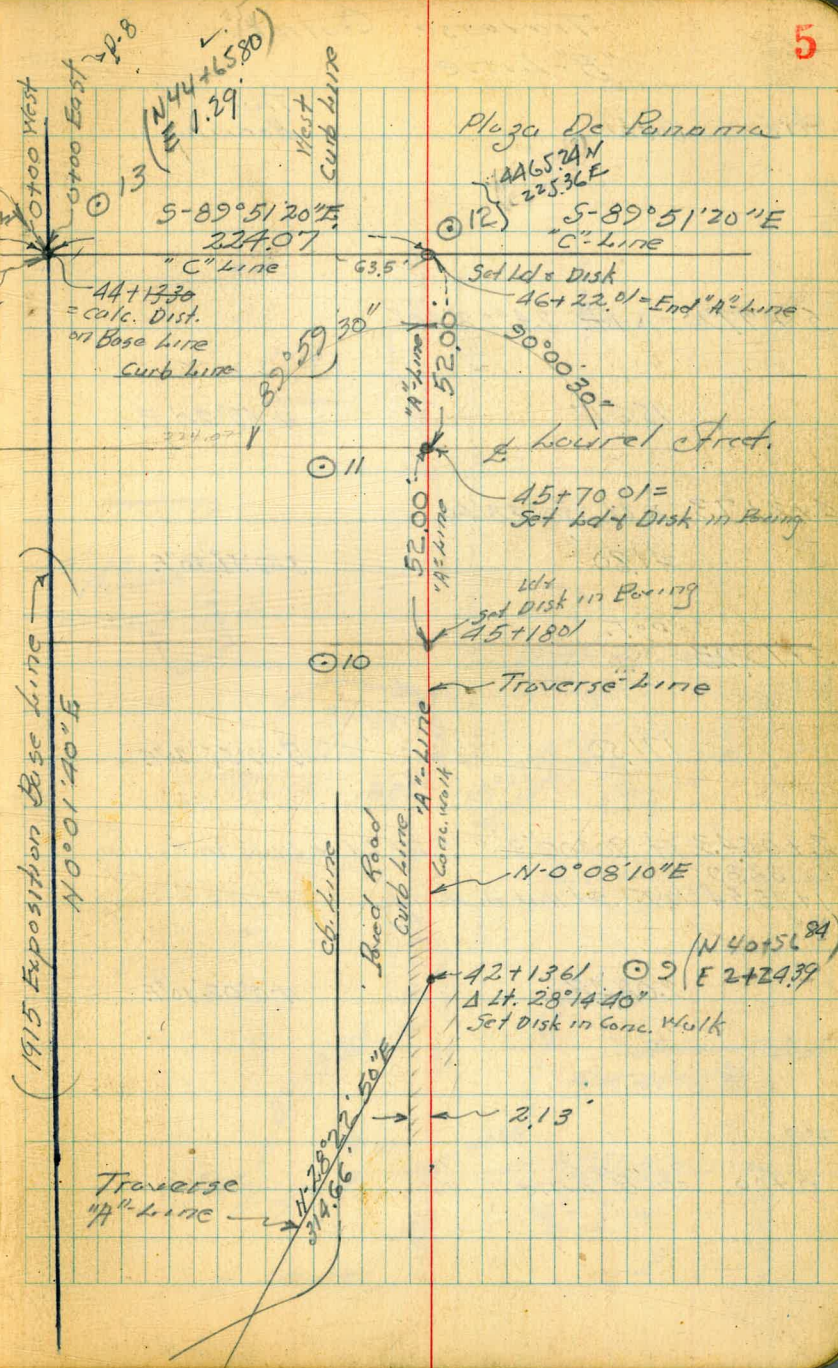 5
P-8
0+00 West
0+00 East
✓
(N44+65.80)
1.29
West
Curb Line
Plaza De Panama
4465.24 N
225.36 E
⊙ 13
⊙ 12
S-89°51'20"E
224.07
"C" Line
63.5'
S-89°51'20"E
"C"-Line
Set Ld & Disk
46+22.01 = End "A"-Line
44+1330
= Calc. Dist.
on Base Line
Curb Line
89°59'30"
"A"-Line
52.00'
90°00'30"
⊙ 11
℄ Laurel Street.
45+70.01=
Set Ld & Disk in Paving
52.00'
"A"-Line
Ld &
Set Disk in Paving
45+18.01
⊙ 10
Traverse-Line
(1915 Exposition Base Line)
N0°01'40"E
"A"-Line
Conc. Walk
Cb. Line
Paved Road
Curb Line
N-0°08'10"E
42+13.61
Δ Lt. 28°14'40"
Set Disk in Conc. Walk
⊙ 9
(N 40+56.84)
E 2+24.39
2.13'
N-28°22'50"E
314.66'
Traverse
"A"-Line